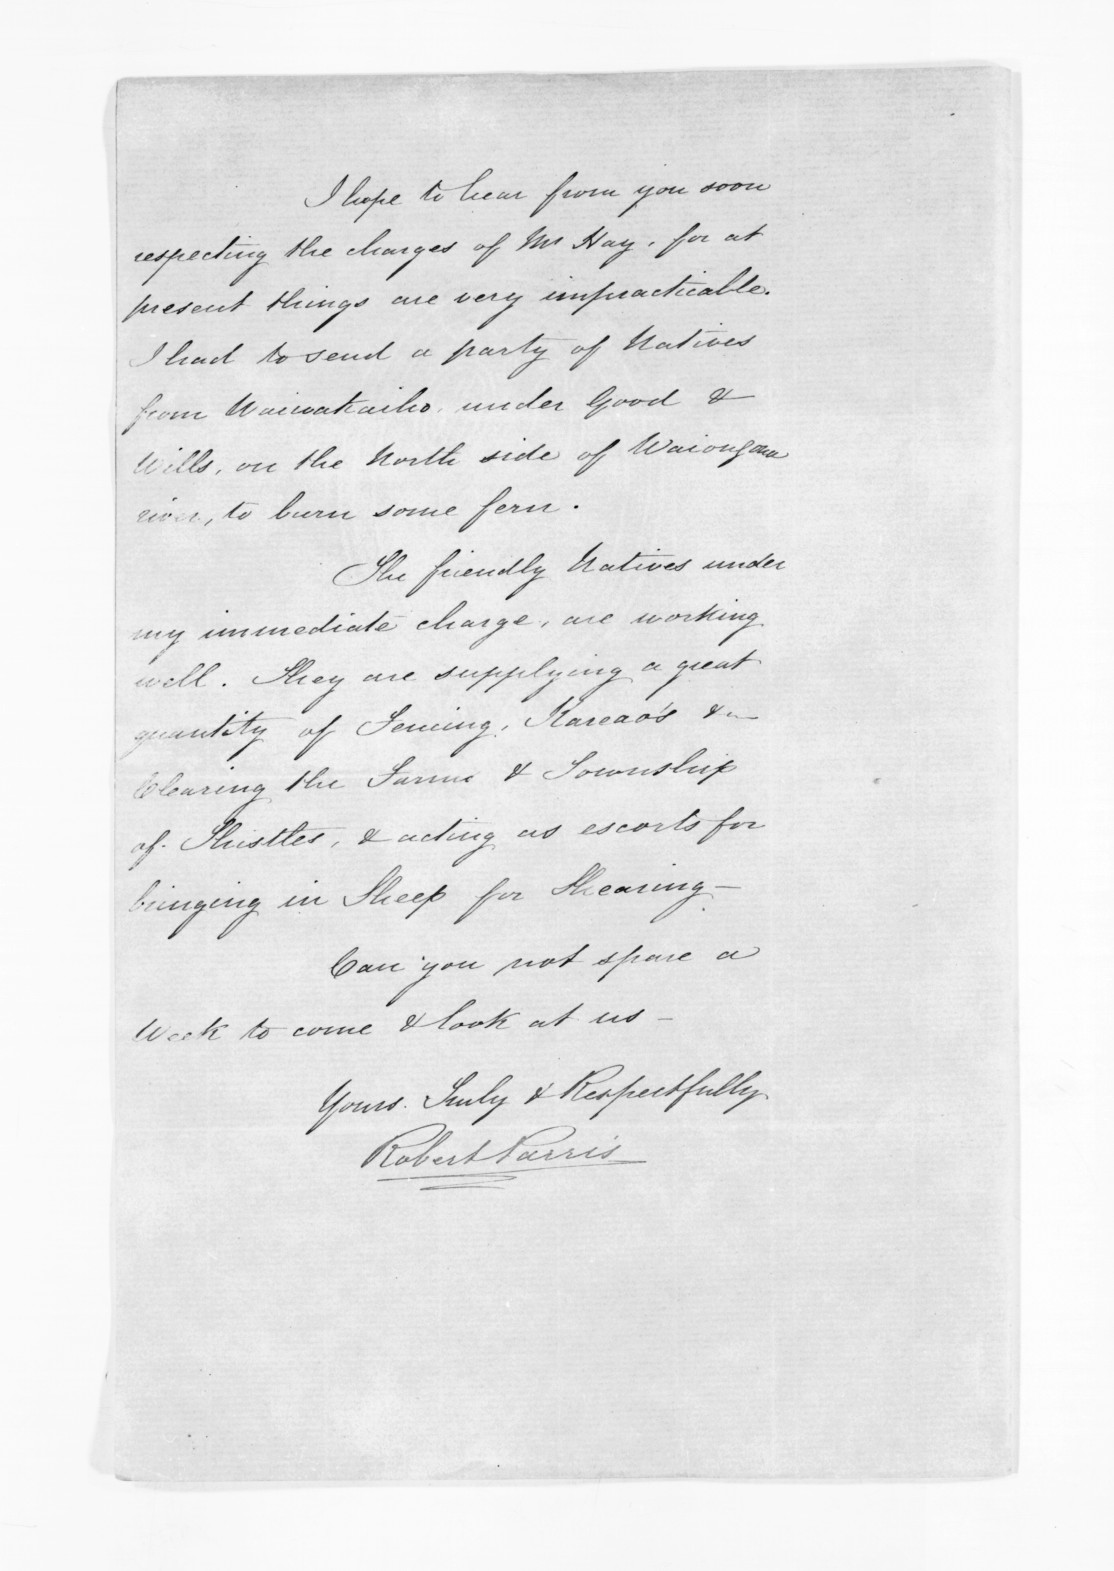 I hope to hear from you soon
respecting the charges of Mr Hay, for at
present things are very impracticable.
I had to send a party of Natives
from Waiwakaiho, under Good &
Wills, on the North side of Waiongana
river, to burn some fern.
The friendly Natives under
my immediate charge, are working
well. They are supplying a great
quantity of Fencing, Kareao's &c
Clearing the Farms & Township
of Thistles, & acting as escorts for
bringing in Sheep for Shearing —
Can you not spare a
Week to come & look at us —
Yours Truly & Respectfully
Robert Parris